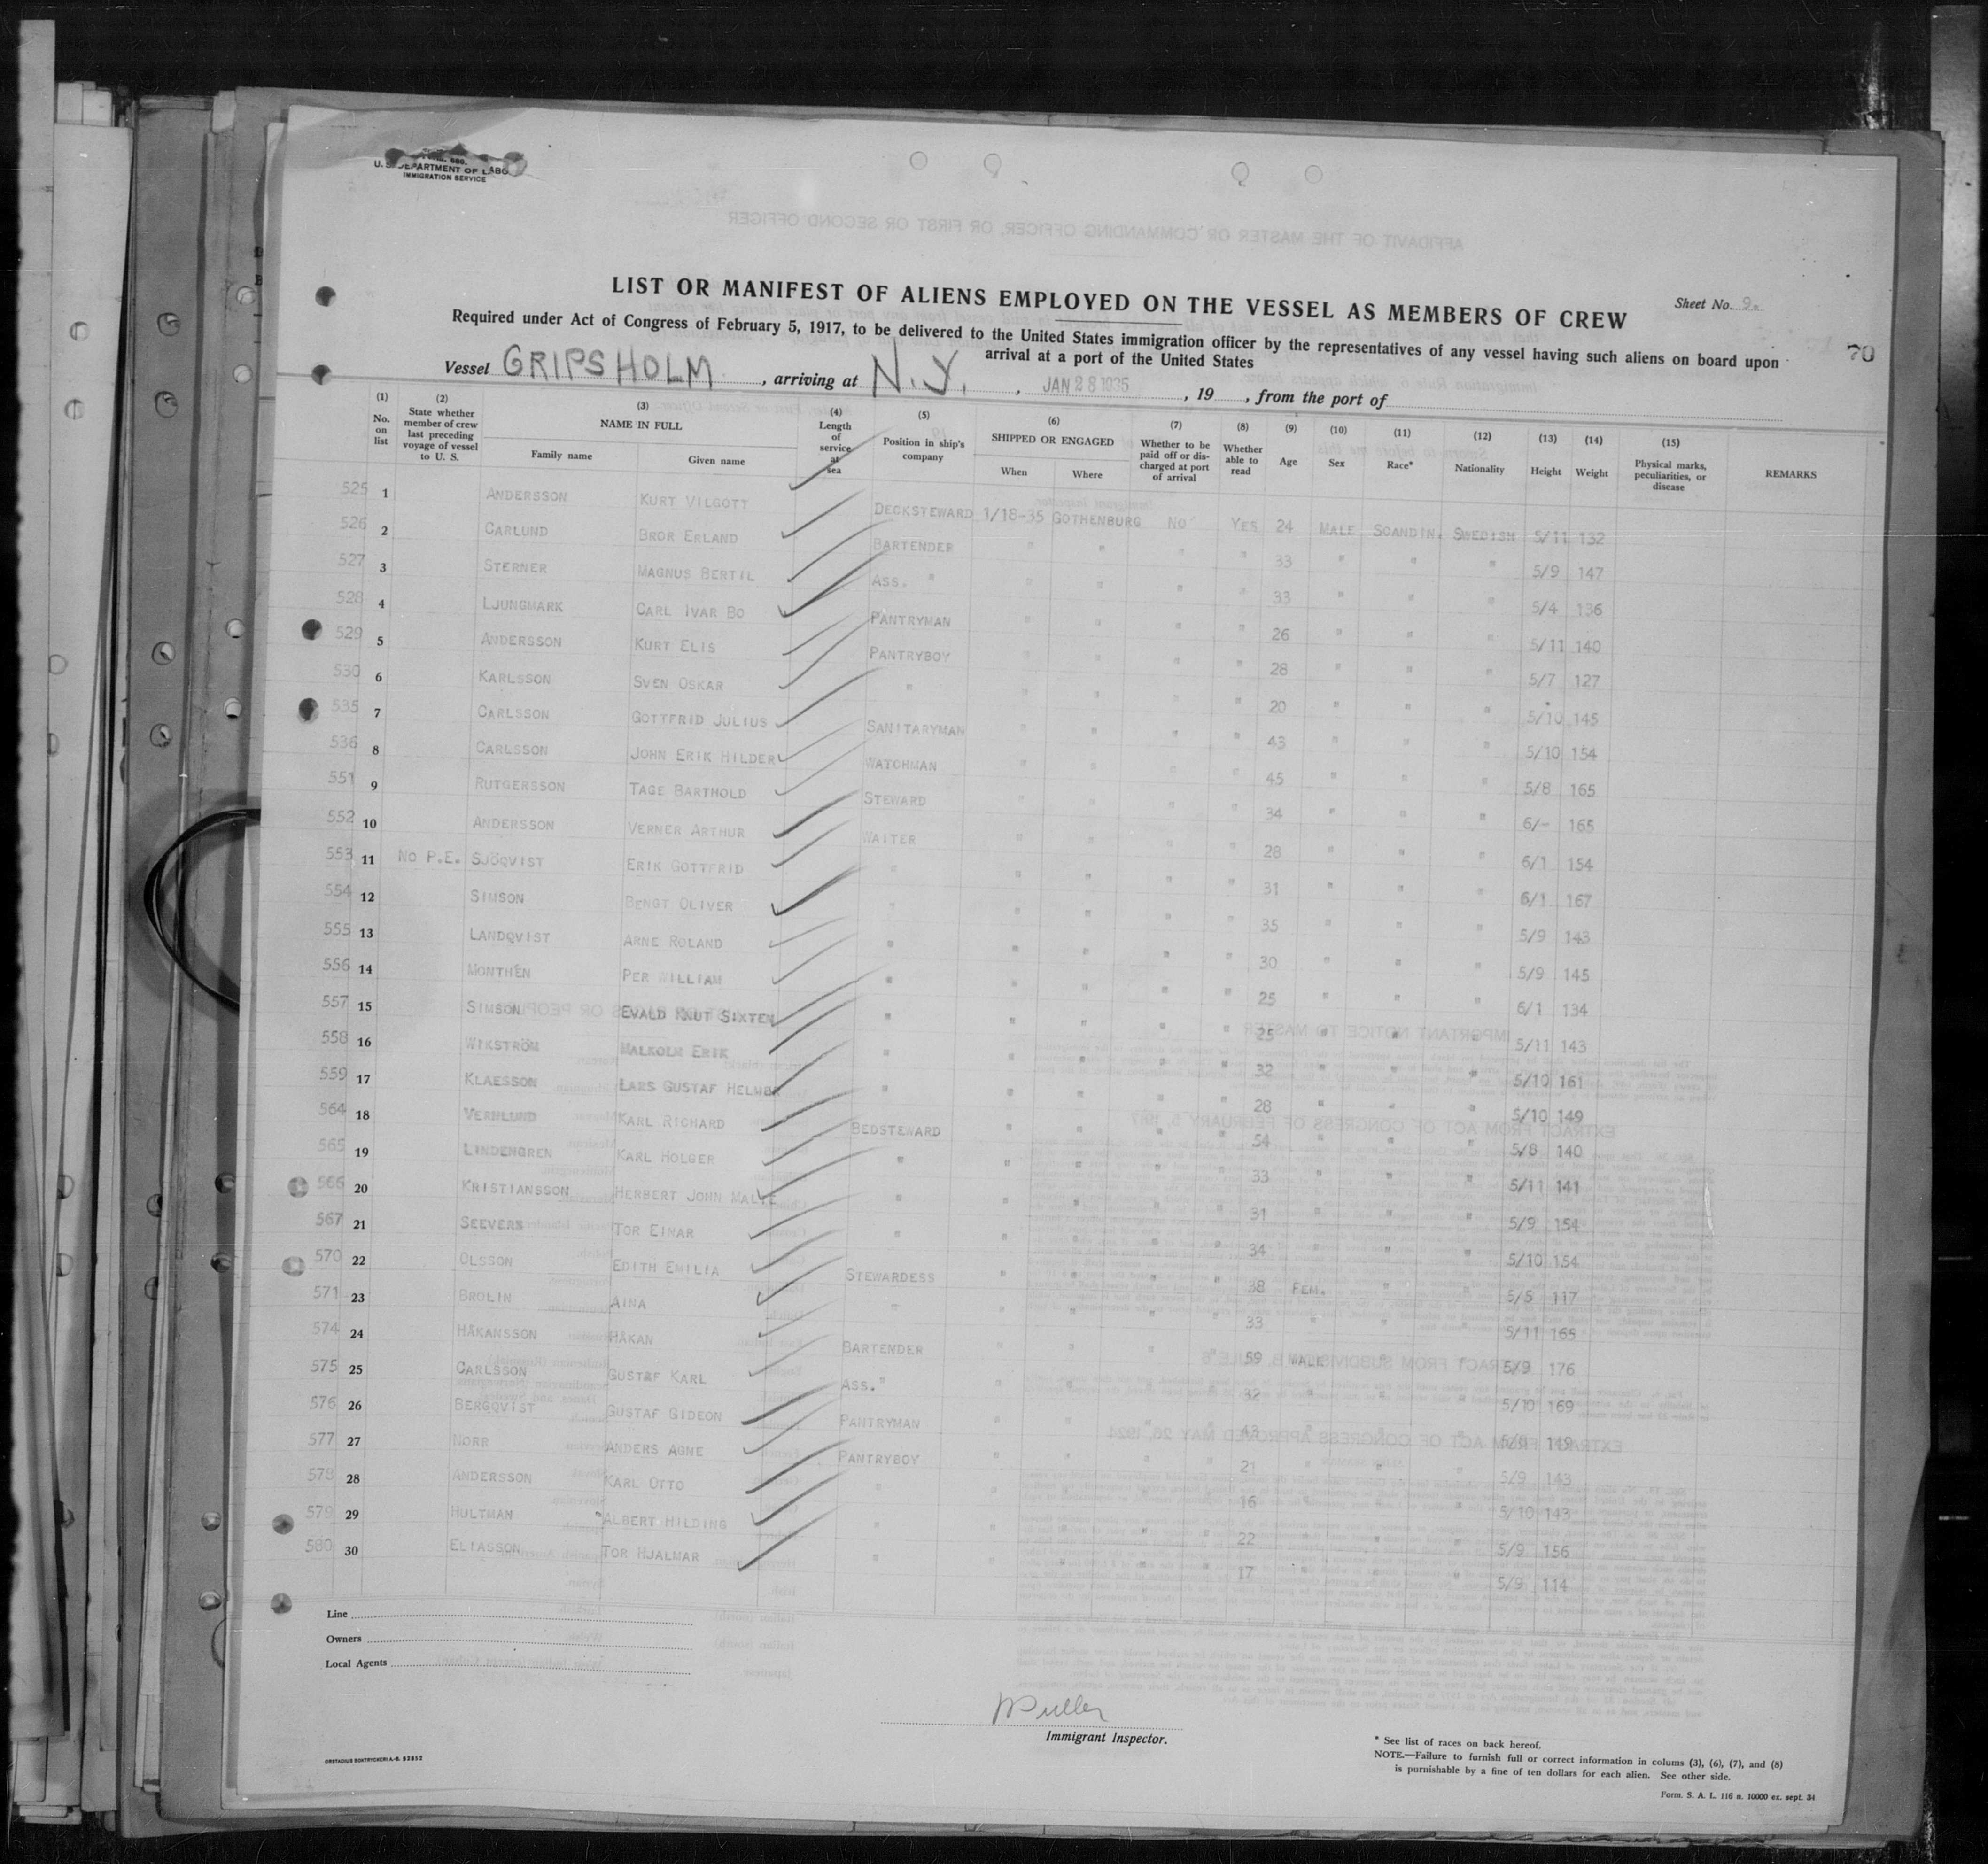 U. S. DEPARTMENT OF LABOR
IMMIGRATION SERVICE
LIST OR MANIFEST OF ALIENS EMPLOYED ON THE VESSEL AS MEMBERS OF CREW
Sheet No. 9.
Required under Act of Congress of February 5, 1917, to be delivered to the United States immigration officer by the representatives of any vessel having such aliens on board upon
arrival at a port of the United States
70
Vessel GRIPSHOLM, arriving at N.Y., JAN 28 1935, 19 , from the port of
(1) No. on list (2) State whether member of crew last preceding voyage of vessel to U. S. (3) NAME IN FULL Family name Given name (4) Length of service at sea (5) Position in ship's company (6) SHIPPED OR ENGAGED When Where (7) Whether to be paid off or discharged at port of arrival (8) Whether able to read (9) Age (10) Sex (11) Race* (12) Nationality (13) Height (14) Weight (15) Physical marks, peculiarities, or disease REMARKS
525 1 ANDERSSON KURT VILGOTT DECKSTEWARD 1/18-35 GOTHENBURG NO YES 24 MALE SCANDIN. SWEDISH 5/11 132
526 2 CARLUND BROR ERLAND BARTENDER " " " " 33 " " " 5/9 147
527 3 STERNER MAGNUS BERTIL ASS. " " " " " 33 " " " 5/4 136
528 4 LJUNGMARK CARL IVAR BO PANTRYMAN " " " " 26 " " " 5/11 140
529 5 ANDERSSON KURT ELIS PANTRYBOY " " " " 28 " " " 5/7 127
530 6 KARLSSON SVEN OSKAR " " " " " 20 " " " 5/10 145
535 7 CARLSSON GOTTFRID JULIUS SANITARYMAN " " " " 43 " " " 5/10 154
536 8 CARLSSON JOHN ERIK HILDER WATCHMAN " " " " 45 " " " 5/8 165
551 9 RUTGERSSON TAGE BARTHOLD STEWARD " " " " 34 " " " 6/- 165
552 10 ANDERSSON VERNER ARTHUR WAITER " " " " 28 " " " 6/1 154
553 11 NO P.E. SJÖQVIST ERIK GOTTFRID " " " " " 31 " " " 6/1 167
554 12 SIMSON BENGT OLIVER " " " " " 35 " " " 5/9 143
555 13 LANDQVIST ARNE ROLAND " " " " " 30 " " " 5/9 145
556 14 MONTHÉN PER WILLIAM " " " " " 25 " " " 6/1 134
557 15 SIMSON EVALD KNUT SIXTEN " " " " " 25 " " " 5/11 143
558 16 WIKSTRÖM MALKOLM ERIK " " " " " 32 " " " 5/10 161
559 17 KLAESSON LARS GUSTAF HELMER " " " " " 28 " " " 5/10 149
564 18 VERNLUND KARL RICHARD BEDSTEWARD " " " " 54 " " " 5/8 140
565 19 LINDENGREN KARL HOLGER " " " " " 33 " " " 5/11 141
566 20 KRISTIANSSON HERBERT JOHN MALTE " " " " " 31 " " " 5/9 154
567 21 SEEVERS TOR EINAR " " " " " 34 " " " 5/10 154
570 22 OLSSON EDITH EMILIA STEWARDESS " " " " 38 FEM. " " 5/5 117
571 23 BROLIN AINA " " " " " 33 " " " 5/11 165
574 24 HÅKANSSON HÅKAN BARTENDER " " " " 59 MALE " " 5/9 176
575 25 CARLSSON GUSTAF KARL ASS." " " " " 32 " " " 5/10 169
576 26 BERGQVIST GUSTAF GIDEON PANTRYMAN " " " " 43 " " " 149
577 27 NORR ANDERS AGNE PANTRYBOY " " " " 21 " " " 5/9 143
578 28 ANDERSSON KARL OTTO " " " " " 16 " " " 5/10 143
579 29 HULTMAN ALBERT HILDING " " " " " 22 " " " 5/9 156
580 30 ELIASSON TOR HJALMAR " " " " " 17 " " " 5/9 114
Line
Owners
Local Agents
Muller
Immigrant Inspector.
* See list of races on back hereof.
NOTE.—Failure to furnish full or correct information in colums (3), (6), (7), and (8)
is purnishable by a fine of ten dollars for each alien. See other side.
Form. S. A. L. 116 n. 10000 ex. sept. 34